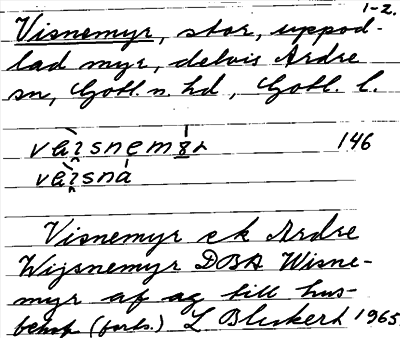 1-2.
Visnemyr, stor, uppod-
lad myr, delvis Ardre
sn, Gotl. n. hd, Gotl. l.
146
Visnemyr ek Ardre
Wijsnemyr DBA Wisne-
myr af ag till hus-
behof (forts.) L Blickert 1965